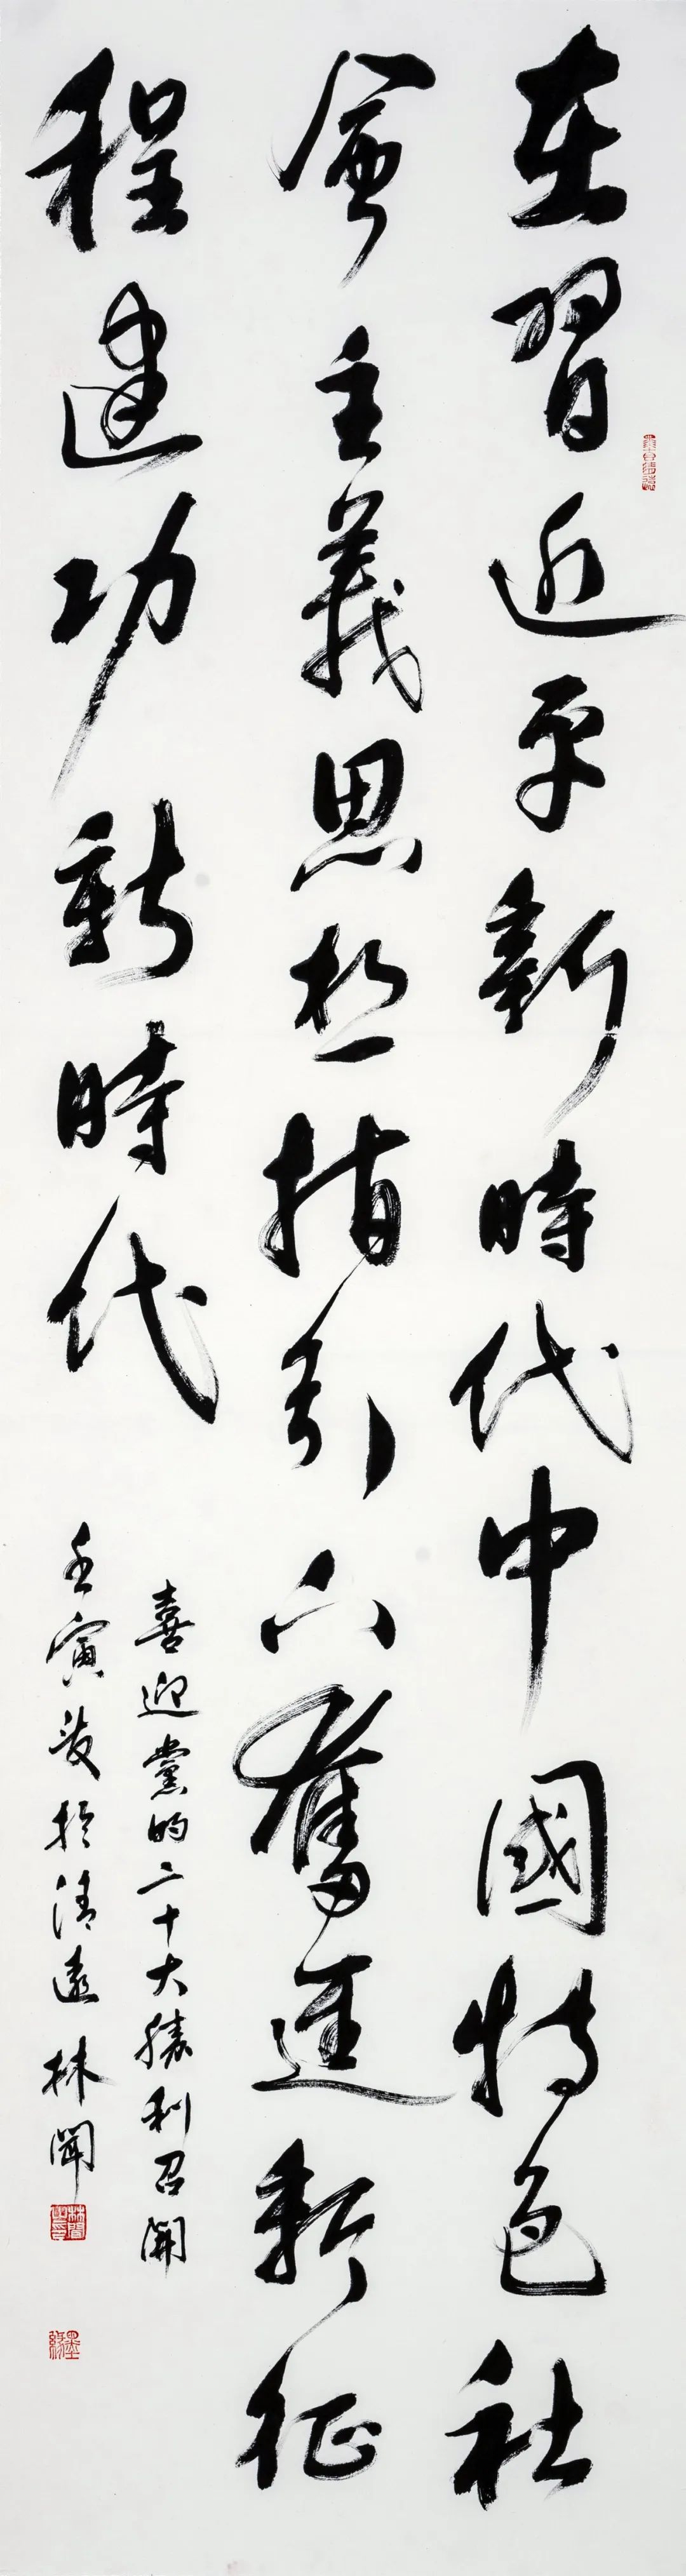 在習近平新時代中國特色社
會主義思想指引下奮進新征
程建功新時代
喜迎黨的二十大勝利召開
壬寅夏於清遠 林聞
墨緣